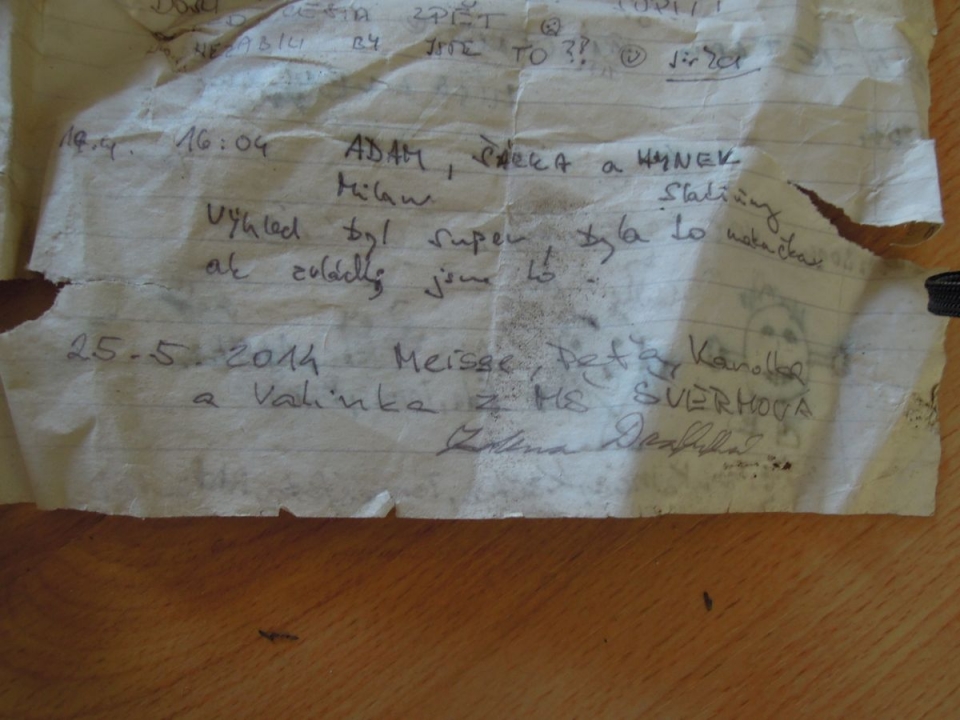 CESTA ZPĚT
NEZABILI BY JSTE TO ?? Jirka
18.4. 16:04 ADAM, ŠÁRKA a HYNEK
Milan Slatiňany
Výhled byl super, byla to makačka
ale zvládly jsme to.
25.5.2014 Meisse, Peťa, Karolka
a Valinka z MŠ ŠVERMOVA